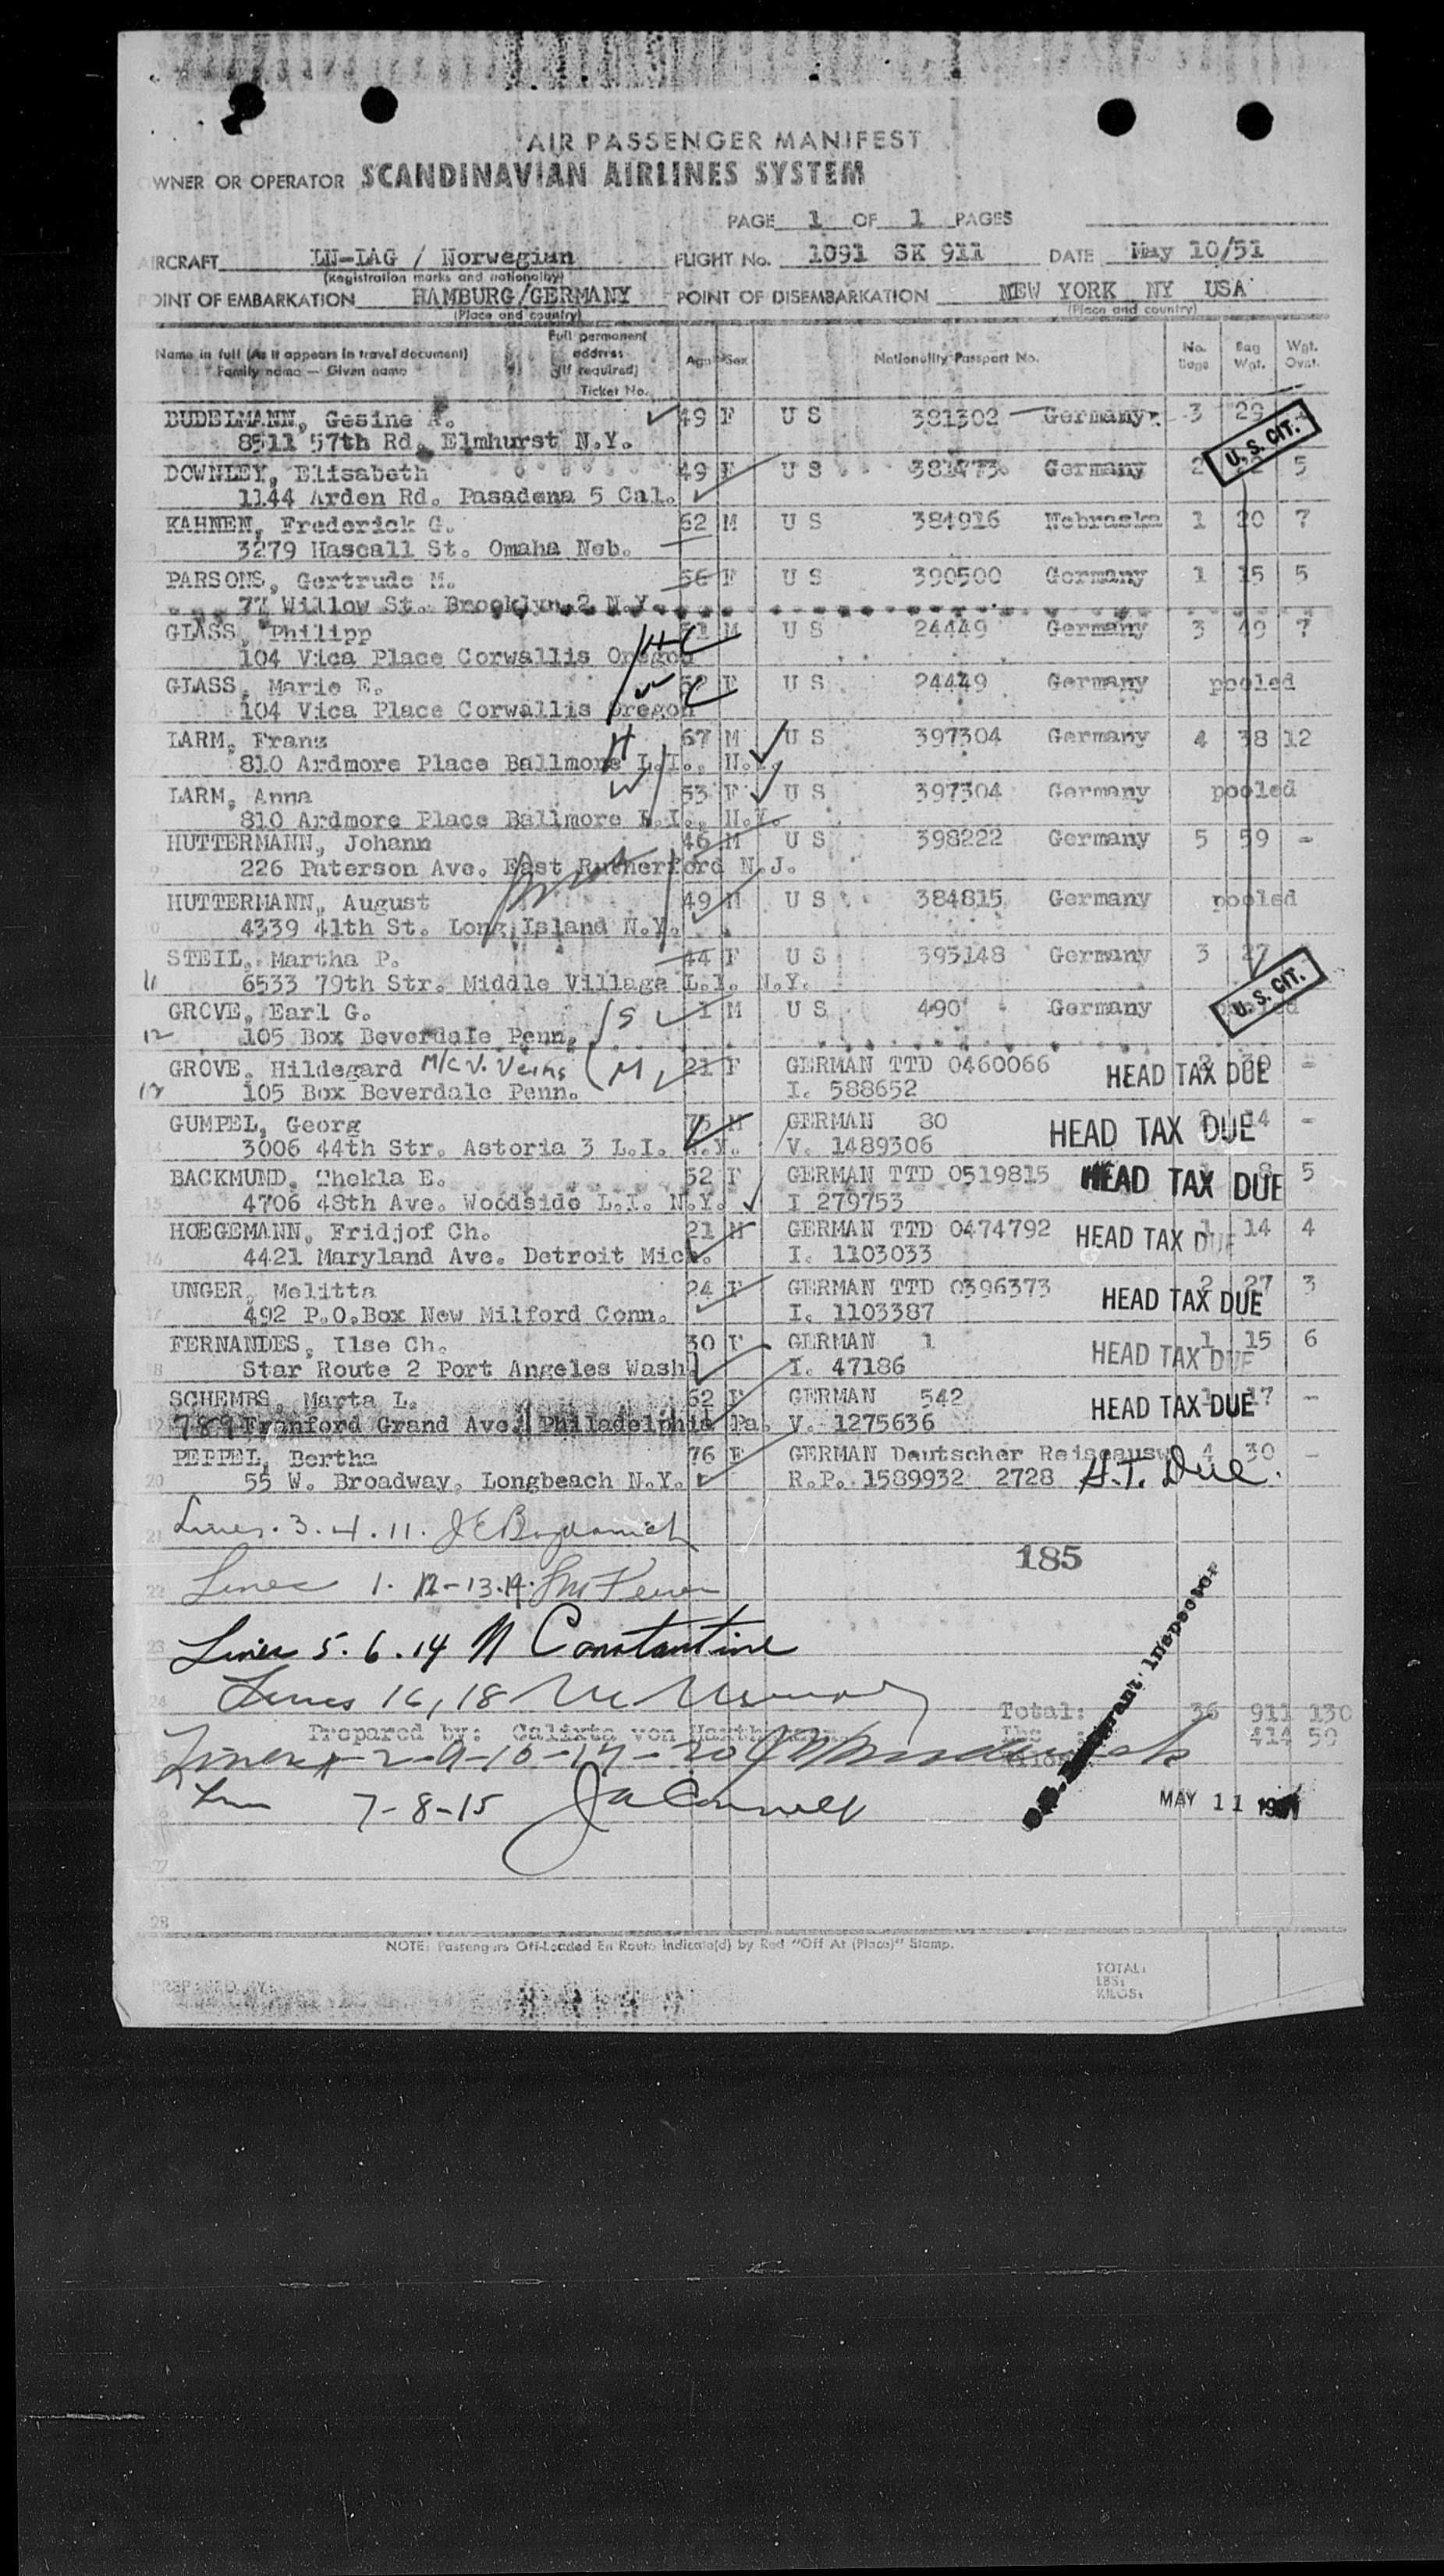 AIR PASSENGER MANIFEST
WNER OR OPERATOR SCANDINAVIAN AIRLINES SYSTEM
PAGE 1 OF 1 PAGES
AIRCRAFT LN-LAG / Norwegian FLIGHT No. 1091 SK 911 DATE May 10/51
(Registration marks and nationality)
POINT OF EMBARKATION HAMBURG/GERMANY POINT OF DISEMBARKATION NEW YORK NY USA
(Place and country) (Place and country)
Name in full (As it appears in travel document) Family name — Given name Full permanent address (if required) Ticket No. Age Sex Nationality Passport No. No. Bags Bag Wgt. Wgt. Ovwt.
BUDELMANN, Gesine A. 49 F U S 381302 Germany 3 29
8511 57th Rd. Elmhurst N.Y.
U.S. CIT.
DOWNLEY, Elisabeth 49 F U S 381773 Germany 2 5
1144 Arden Rd. Pasadena 5 Cal.
KAHNEN, Frederick G. 62 M U S 384916 Nebraska 1 20 7
3279 Hascall St. Omaha Neb.
PARSONS, Gertrude M. 56 F U S 390500 Germany 1 15 5
77 Willow St. Brooklyn 2 N.Y.
GLASS, Philipp 51 M U S 24449 Germany 3 49 7
104 Vica Place Corwallis Oregon
GLASS, Marie E. 52 F U S 24449 Germany pooled
104 Vica Place Corwallis Oregon
LARM, Franz 67 M U S 397304 Germany 4 38 12
810 Ardmore Place Ballmore L.I., N.Y.
LARM, Anna 53 F U S 397304 Germany pooled
810 Ardmore Place Ballmore L.I., N.Y.
HUTTERMANN, Johann 46 M U S 398222 Germany 5 59 -
226 Paterson Ave. East Rutherford N.J.
HUTTERMANN, August 49 M U S 384815 Germany pooled
10 4339 41th St. Long Island N.Y.
STEIL, Martha P. 44 F U S 393148 Germany 3 27
11 6533 79th Str. Middle Village L.I. N.Y.
U.S. CIT.
GROVE, Earl G. 1 M U S 490 Germany
12 105 Box Beverdale Penn. S
GROVE, Hildegard 21 F GERMAN TTD 0460066 30 -
13 105 Box Beverdale Penn. M I. 588652 HEAD TAX DUE
GUMPEL, Georg 75 M GERMAN 80 14 -
3006 44th Str. Astoria 3 L.I. N.Y. V. 1489306 HEAD TAX DUE
BACKMUND, Thekla E. 52 F GERMAN TTD 0519815 8 5
4706 48th Ave. Woodside L.I. N.Y. I 279753 HEAD TAX DUE
HOEGEMANN, Fridjof Ch. 21 M GERMAN TTD 0474792 1 14 4
4421 Maryland Ave. Detroit Mich. I. 1103033 HEAD TAX DUE
UNGER, Melitta 24 F GERMAN TTD 0396373 2 27 3
17 492 P.O.Box New Milford Conn. I. 1103387 HEAD TAX DUE
FERNANDES, Ilse Ch. 30 F GERMAN 1 1 15 6
18 Star Route 2 Port Angeles Wash. I. 47186 HEAD TAX DUE
SCHEMBS, Marta L. 62 F GERMAN 542 1 17 -
789 Franford Grand Ave. Philadelphia Pa. V. 1275636 HEAD TAX DUE
PEPPEL, Bertha 76 F GERMAN Deutscher Reiseausw 4 30 -
20 55 W. Broadway, Longbeach N.Y. R.P. 1589932 2728 H.T. Due.
21 Lines. 3. 4. 11.
185
22 Lines 1. 12-13.19.
23 Lines 5. 6. 14 N Constantine
24 Lines 16, 18
Total: 36 911 130
Prepared by: Calixta von Lbs 414 59
Lines 2-9-10-17-20
7-8-15
Immigrant Inspector
MAY 11 1951
27
28
NOTE: Passengers Off-Loaded En Route Indicate(d) by Red "Off At (Place)" Stamp.
TOTAL:
LBS:
KILOS:
PREPARED BY: